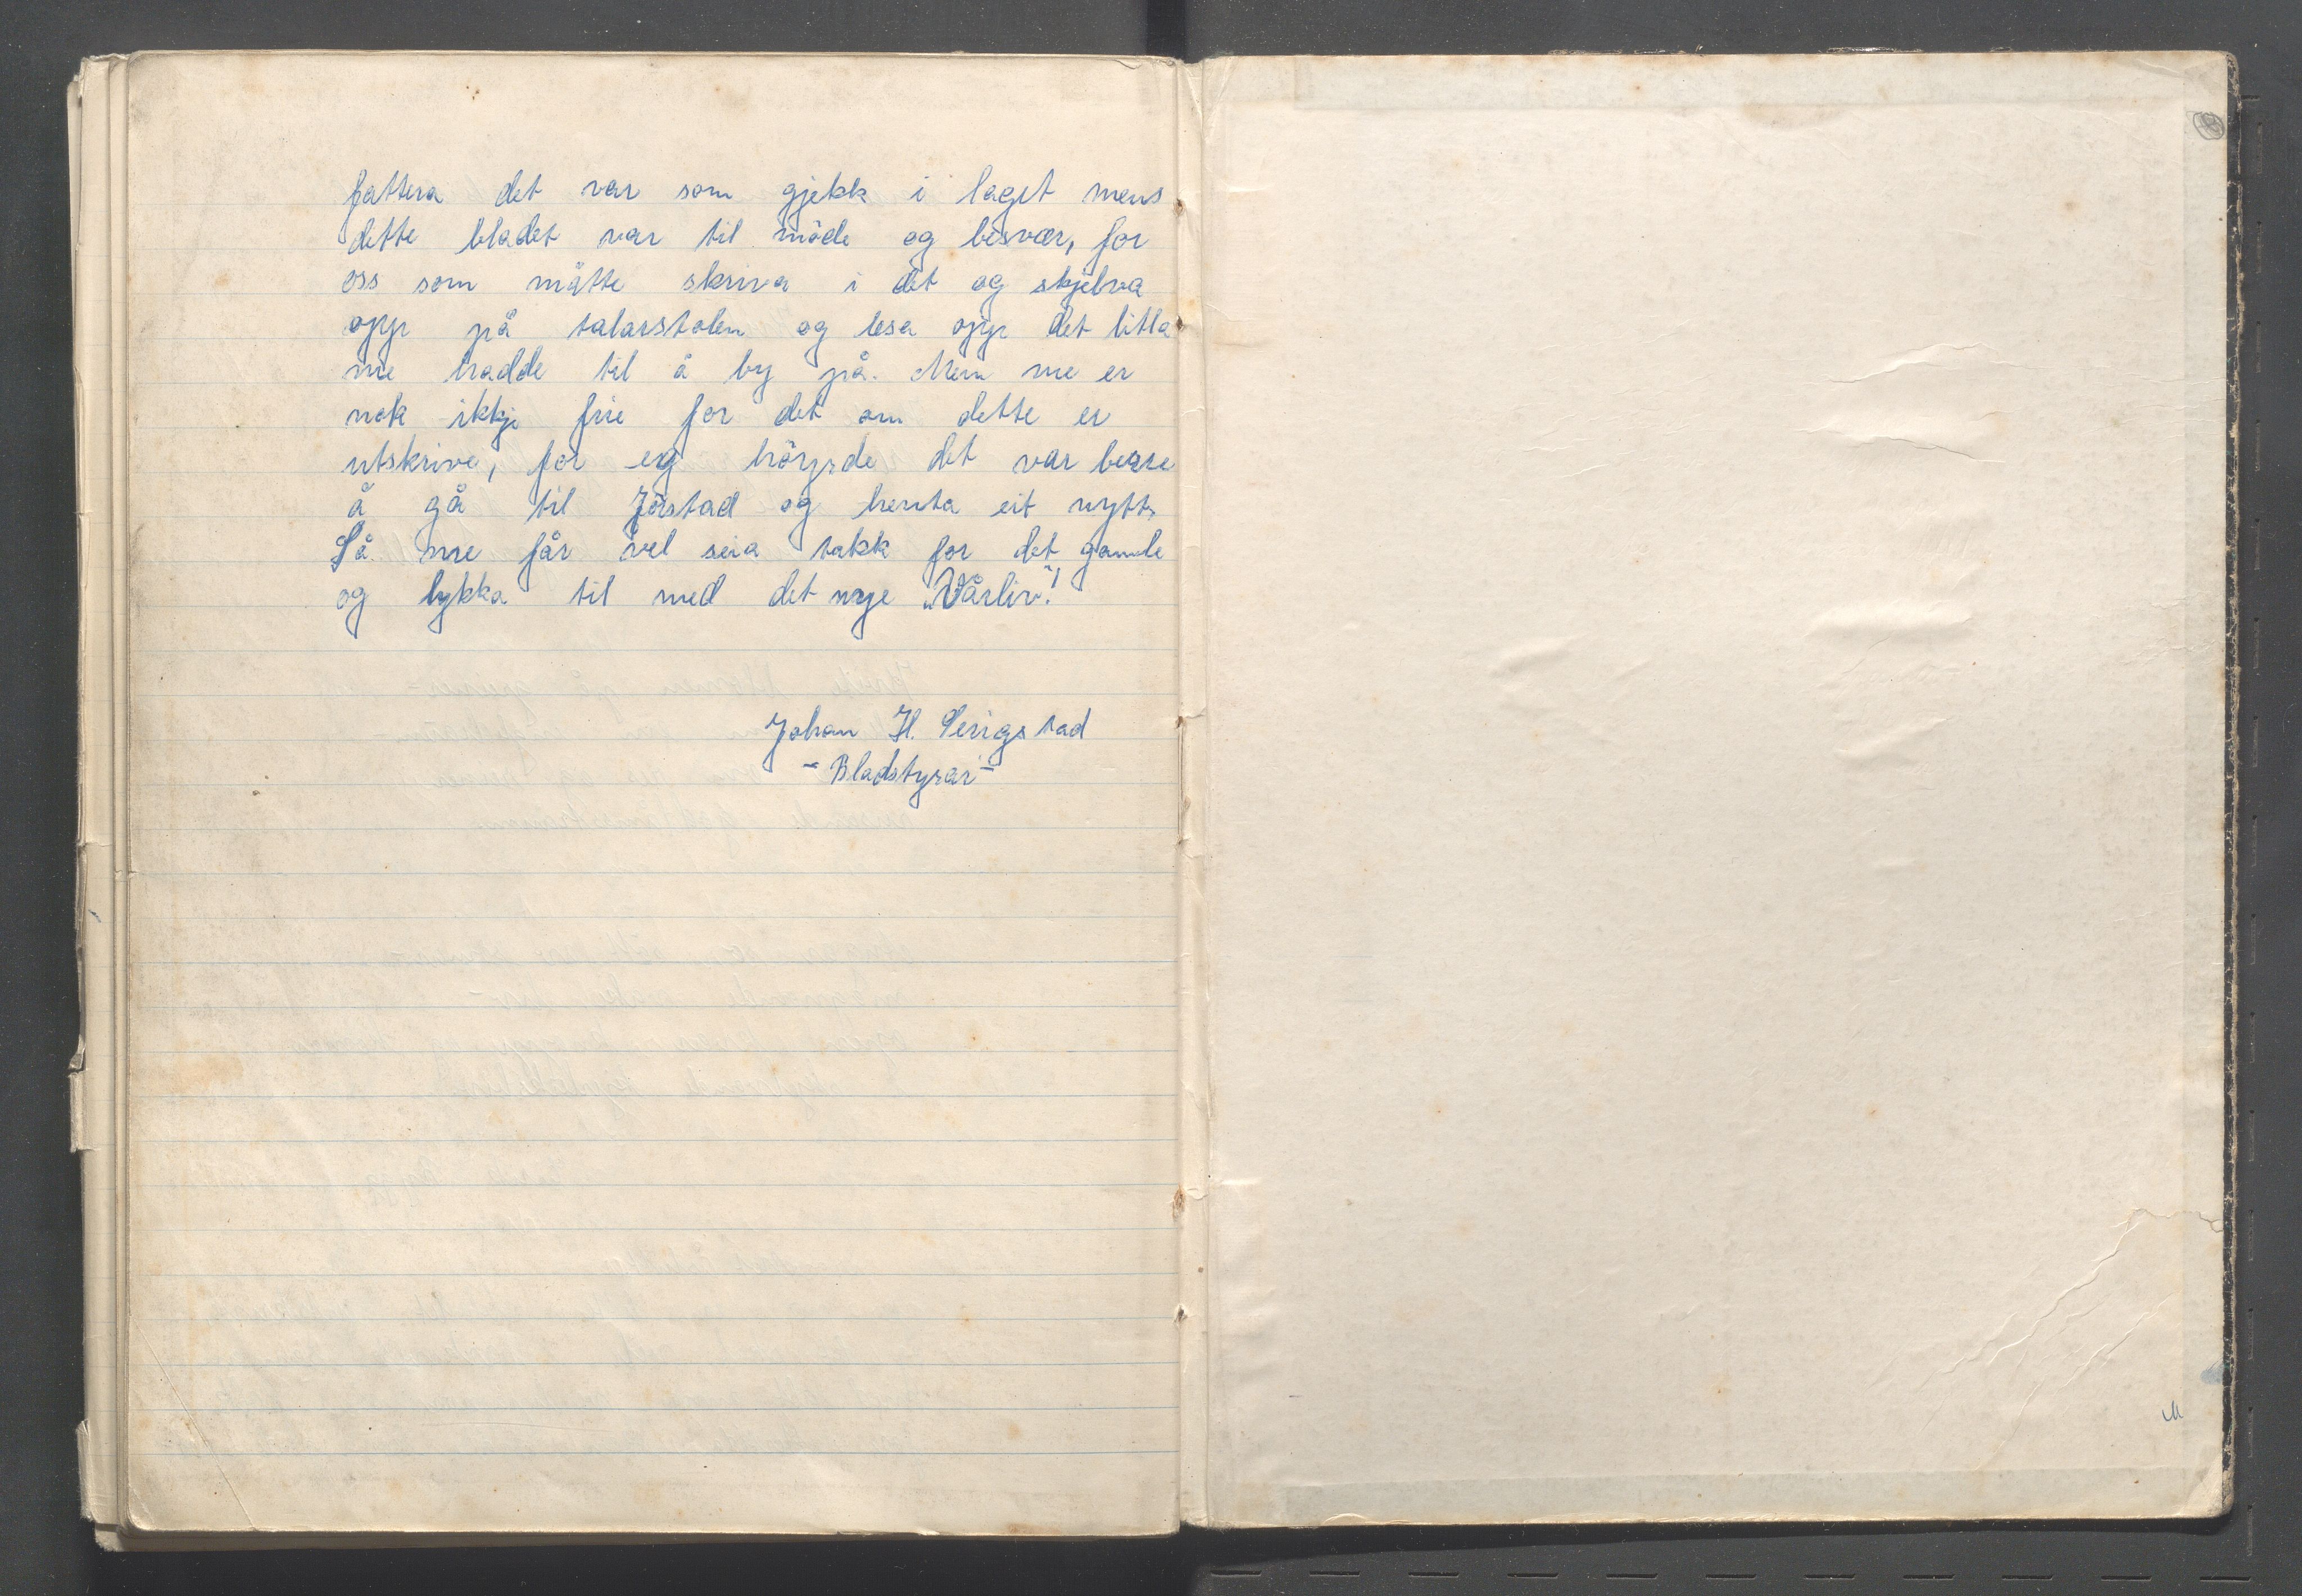 fattera det var som gjekk i laget mens
dette bladet var til möde og besvær, for
oss som måtte skriva i det og skjelva
opp på talarstolen og lesa opp det litla
me hadde til å by på. Men me er
nok ikkje frie for det om dette er
utskrive, for eg höyrde det var berre
å gå til Jöstad og henta eit nytt,
Så me får vel seia takk for det gamle
og lykka til med det nye „Vårliv"!
Johan H. Serigstad
- Bladstyrar -